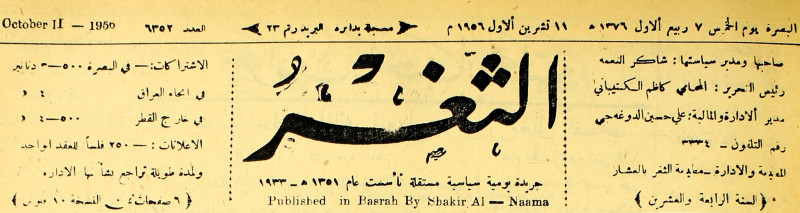 البصرة يوم الخميس ٧ ربيع الاول ١٣٧٦ هـ ١١ تشرين الاول ١٩٥٦ م مسجلة بدائرة البريد رقم ٢٣ العدد ٦٣٥٢ October 11 — 1956
صاحبها ومدير سياستها : شاكر النعمه
رئيس التحرير : المحامي كاظم الكتيباني
مدير الادارة والمالية : علي حسين الدوغه جي
رقم التلفون — ٣٣٣٤
المطبعة والادارة — مطبعة الثغر بالعشار
( السنة الرابعة والعشرين )
الثغر
جريدة يومية سياسية مستقلة تأسست عام ١٣٥١ هـ — ١٩٣٣
Published in Basrah By Shakir Al — Naama
الاشتراكات :— في البصرة ٥٠٠—٣ دنانير
في انحاء العراق ٤ »
في خارج القطر ٥٠٠—٤ »
الاعلانات : — ٢٥٠ فلساً للعقد الواحد
ولمدة طويلة تراجع بشأنها الاداره
( ٦ صفحات ثمن النسخة ١٠ فلوس )